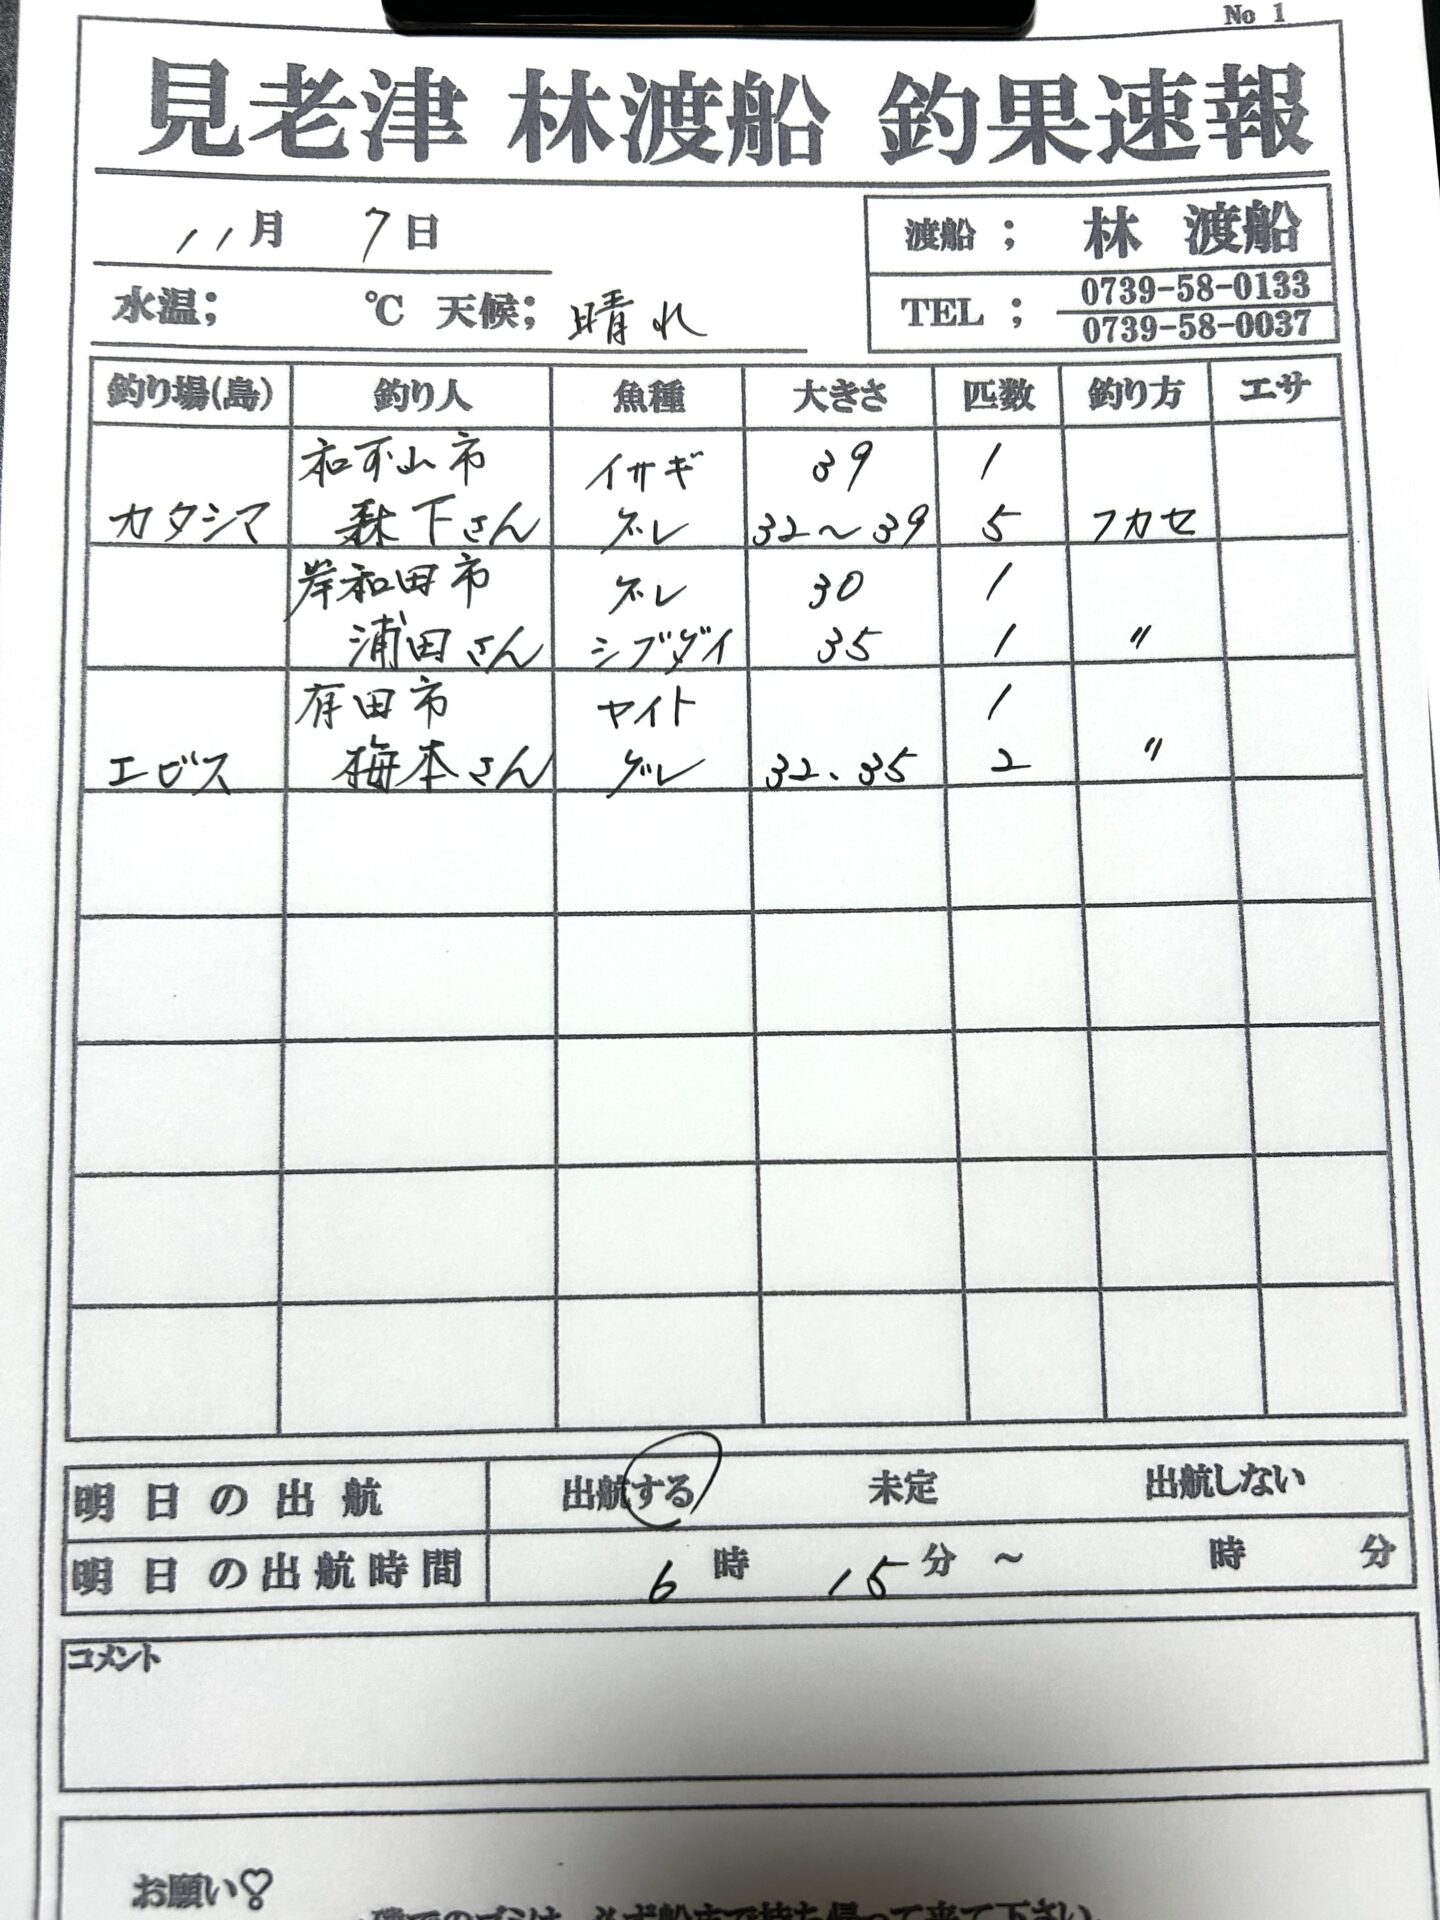 No 1
見老津 林渡船 釣果速報
11月 7日
渡船 ; 林 渡船
水温; ℃ 天候; 晴れ
TEL ; 0739-58-0133
0739-58-0037
釣り場(島) 釣り人 魚種 大きさ 匹数 釣り方 エサ
和歌山市 イサギ 39 1
カタシマ 森下さん グレ 32～39 5 フカセ
岸和田市 グレ 30 1
浦田さん シブダイ 35 1 〃
有田市 ヤイト 1
エビス 梅本さん グレ 32、35 2 〃
明日の出航 出航する 未定 出航しない
明日の出航時間 6時 15分 ～ 時 分
コメント
お願い♡
磯でのゴミは、必ず船まで持ち帰って来て下さい。